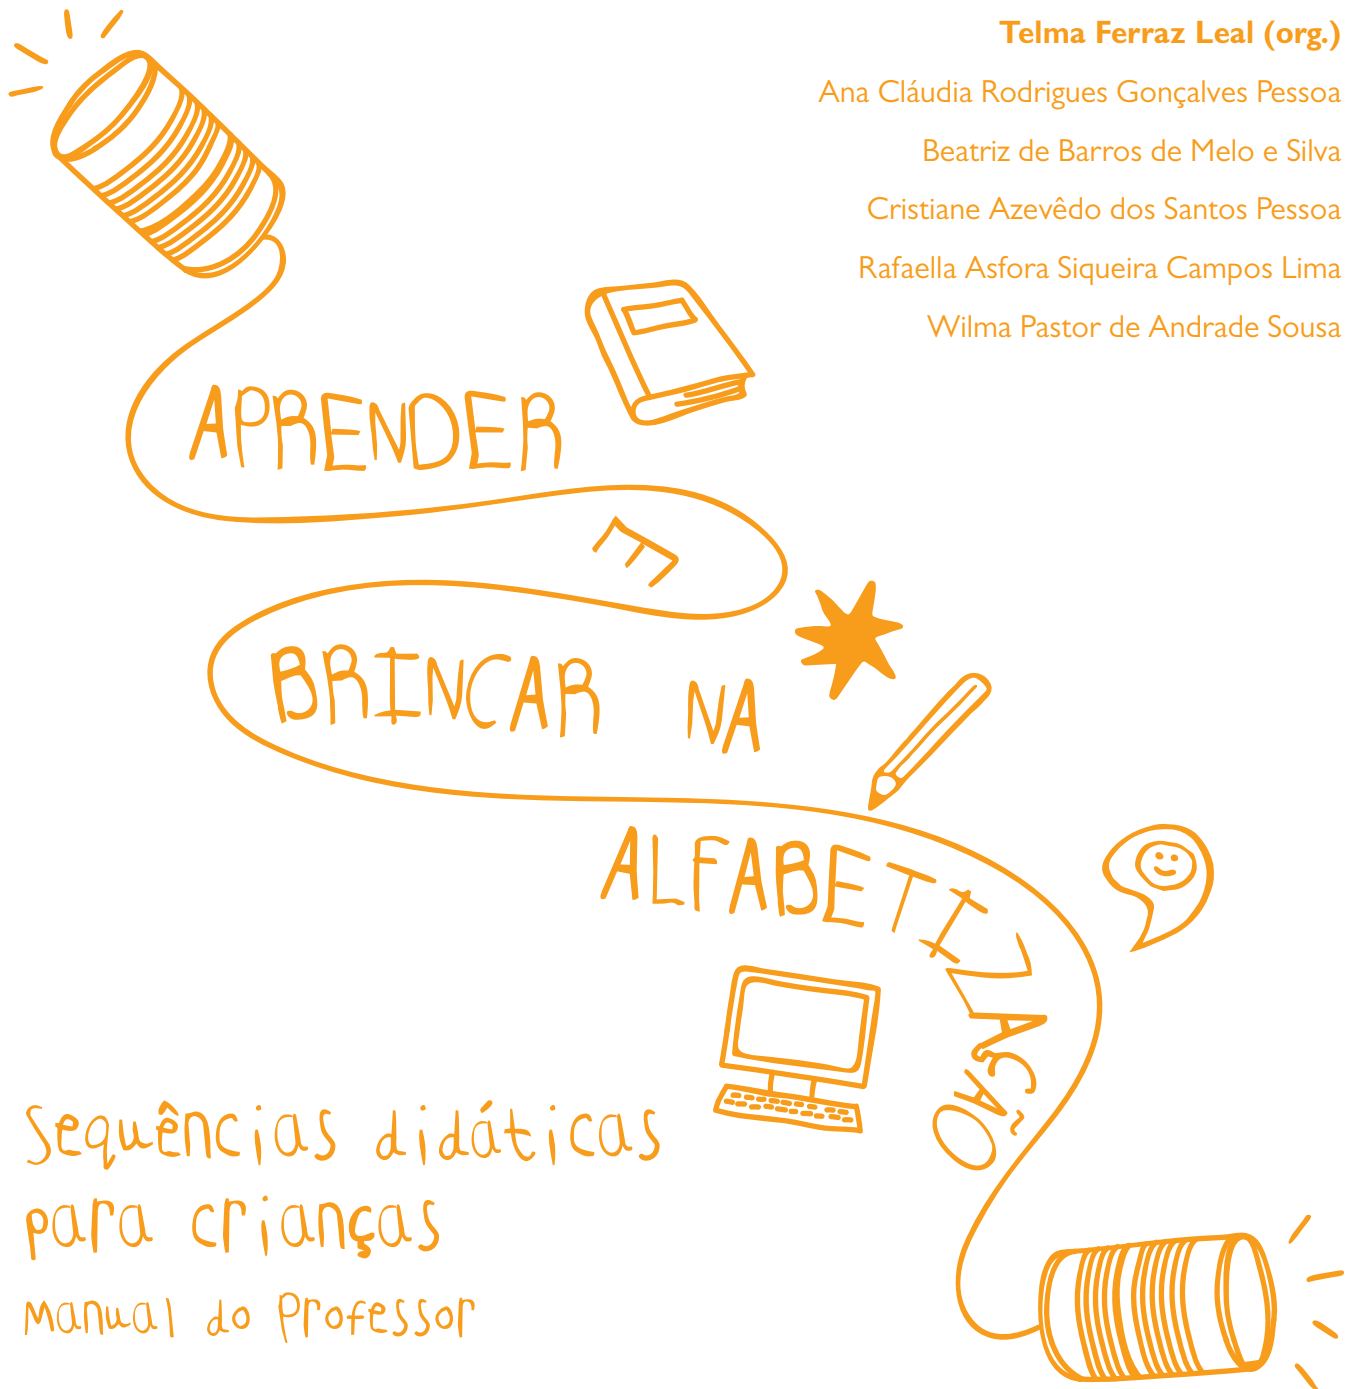 Telma Ferraz Leal (org.)
Ana Cláudia Rodrigues Gonçalves Pessoa
Beatriz de Barros de Melo e Silva
Cristiane Azevêdo dos Santos Pessoa
Rafaella Asfora Siqueira Campos Lima
Wilma Pastor de Andrade Sousa
APRENDER
E
BRINCAR NA
ALFABETIZAÇÃO
Sequências didáticas
para crianças
Manual do Professor